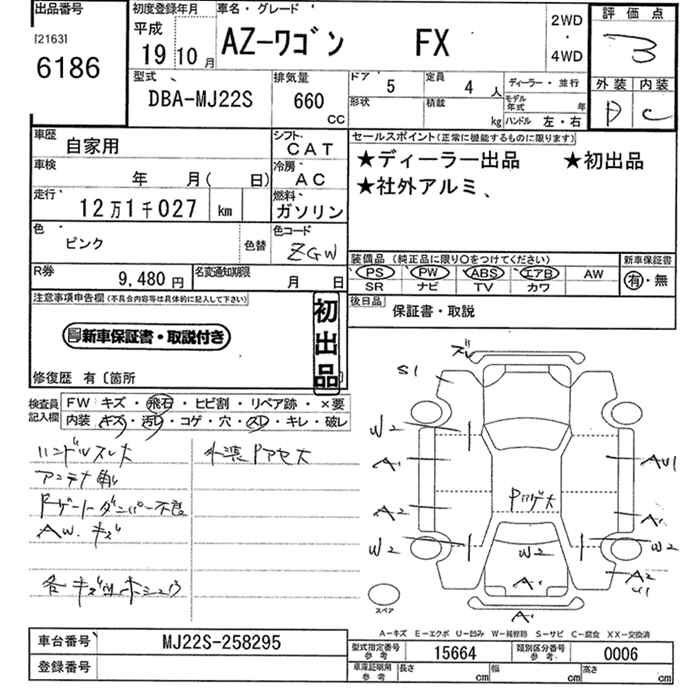 出品番号
[2163]
6186
初度登録年月
平成
19 10月
車名・グレード
AZ-ワゴン FX
2WD
・
4WD
評価点
3
外装 内装
D C
型式
DBA-MJ22S
排気量
660
cc
ドア
5
定員
4人
ディーラー・並行
形状
積載
kg
モデル年式 年
ハンドル 左・右
車歴
自家用
シフト
CAT
車検
年 月( 日)
冷房
AC
走行
12万1千027 km
燃料
ガソリン
色
ピンク
色替
色コード
ZGW
R券
9,480円
名変通知期限
月 日
セールスポイント(正常に機能するものに限ります)
★ディーラー出品 ★初出品
★社外アルミ、
装備品(純正品に限り○をつけてください)
PS PW ABS エアB AW
SR ナビ TV カワ
新車保証書
有・無
後日品
保証書・取説
注意事項申告欄(不具合内容等は具体的に記入して下さい)
新車保証書・取説付き
初出品
修復歴 有〔箇所
検査員記入欄
FW キズ・飛石・ヒビ割・リペア跡・×要
内装 キズ・汚レ・コゲ・穴・スレ・キレ・破レ
ハンドルスレ大
アンテナ
Fゲートダンパー不良
AW キズ
各キズ
外装
ズレ
S1
W2
A1
AU1
A2
A1
W2
W2
W2
A1
A2
U1
A1
スペア
A-キズ E-エクボ U-凹み W-補修跡 S-サビ C-腐食 XX-交換済
車台番号
MJ22S-258295
登録番号
型式指定番号
参考
15664
類別区分番号
参考
0006
車庫証明用
参考
長さ cm
幅 cm
高さ cm